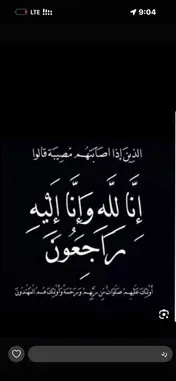 9:04
LTE
الذين إذا أصابتهم مصيبة قالوا
إِنَّا لِلَّهِ وَإِنَّا إِلَيْهِ
رَاجِعُونَ
أُولَئِكَ عَلَيْهِمْ صَلَوَاتٌ مِنْ رَبِّهِمْ وَرَحْمَةٌ وَأُولَئِكَ هُمُ الْمُهْتَدُونَ
رد